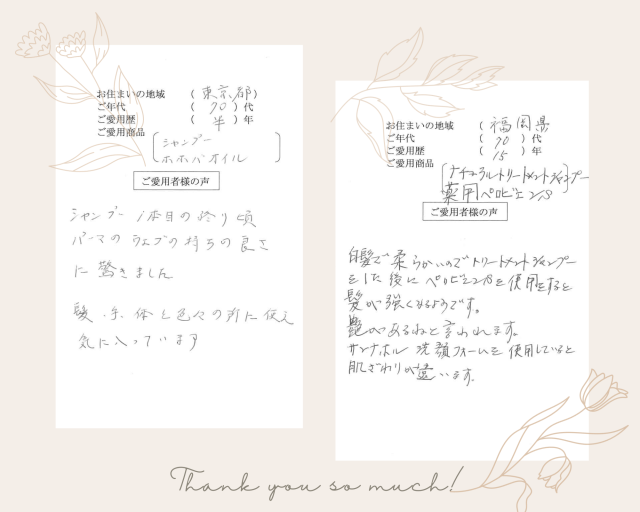 お住まいの地域 (東京都)
ご年代 (70) 代
ご愛用歴 (半) 年
ご愛用商品
シャンプー
ホホバオイル
ご愛用者様の声
シャンプー1本目の終り頃
パーマのウェブの持ちの良さ
に驚きました
髪・手・体と色々の所に使え
気に入っています
お住まいの地域 (福岡県)
ご年代 (70) 代
ご愛用歴 (15) 年
ご愛用商品
ナチュラルトリートメントシャンプー
薬用ペロビエンパ
ご愛用者様の声
白髪で柔らかいのでトリートメントシャンプー
をした後にペロビエンパを使用をすると
髪が強くなるようです。
艶があるねと言われます。
サンナホル洗顔フォームを使用していると
肌ざわりが違います。
Thank you so much!